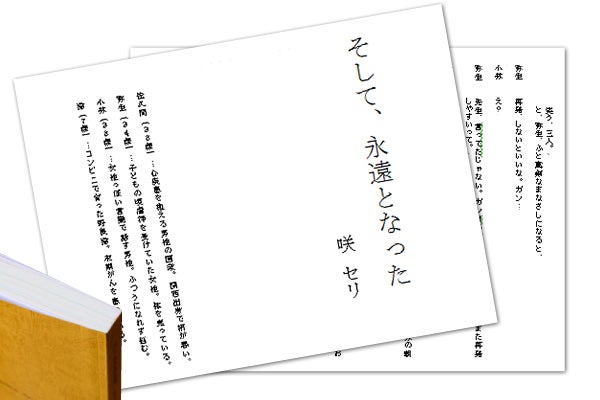 そして、永遠となった
咲 セリ
佐久間（３８歳）…心疾患を抱える男性の国家。関西出身で柄が悪い。
弥生（２４歳）…子どもの頃虐待を受けていた女性。体を売っている。
小林（３３歳）…女性っぽい言葉で話す男性。ふつうになれず悩む。
澪（７歳）…コンビニで育った野良猫。末期がんを
笑う、三人。
と、弥生、ふと真剣なまなざしになると、
弥生　再発、しないといいな。ガン…
小林　え？
弥生　先生、言ってたじゃない。ガン
しやすいって。
また再発